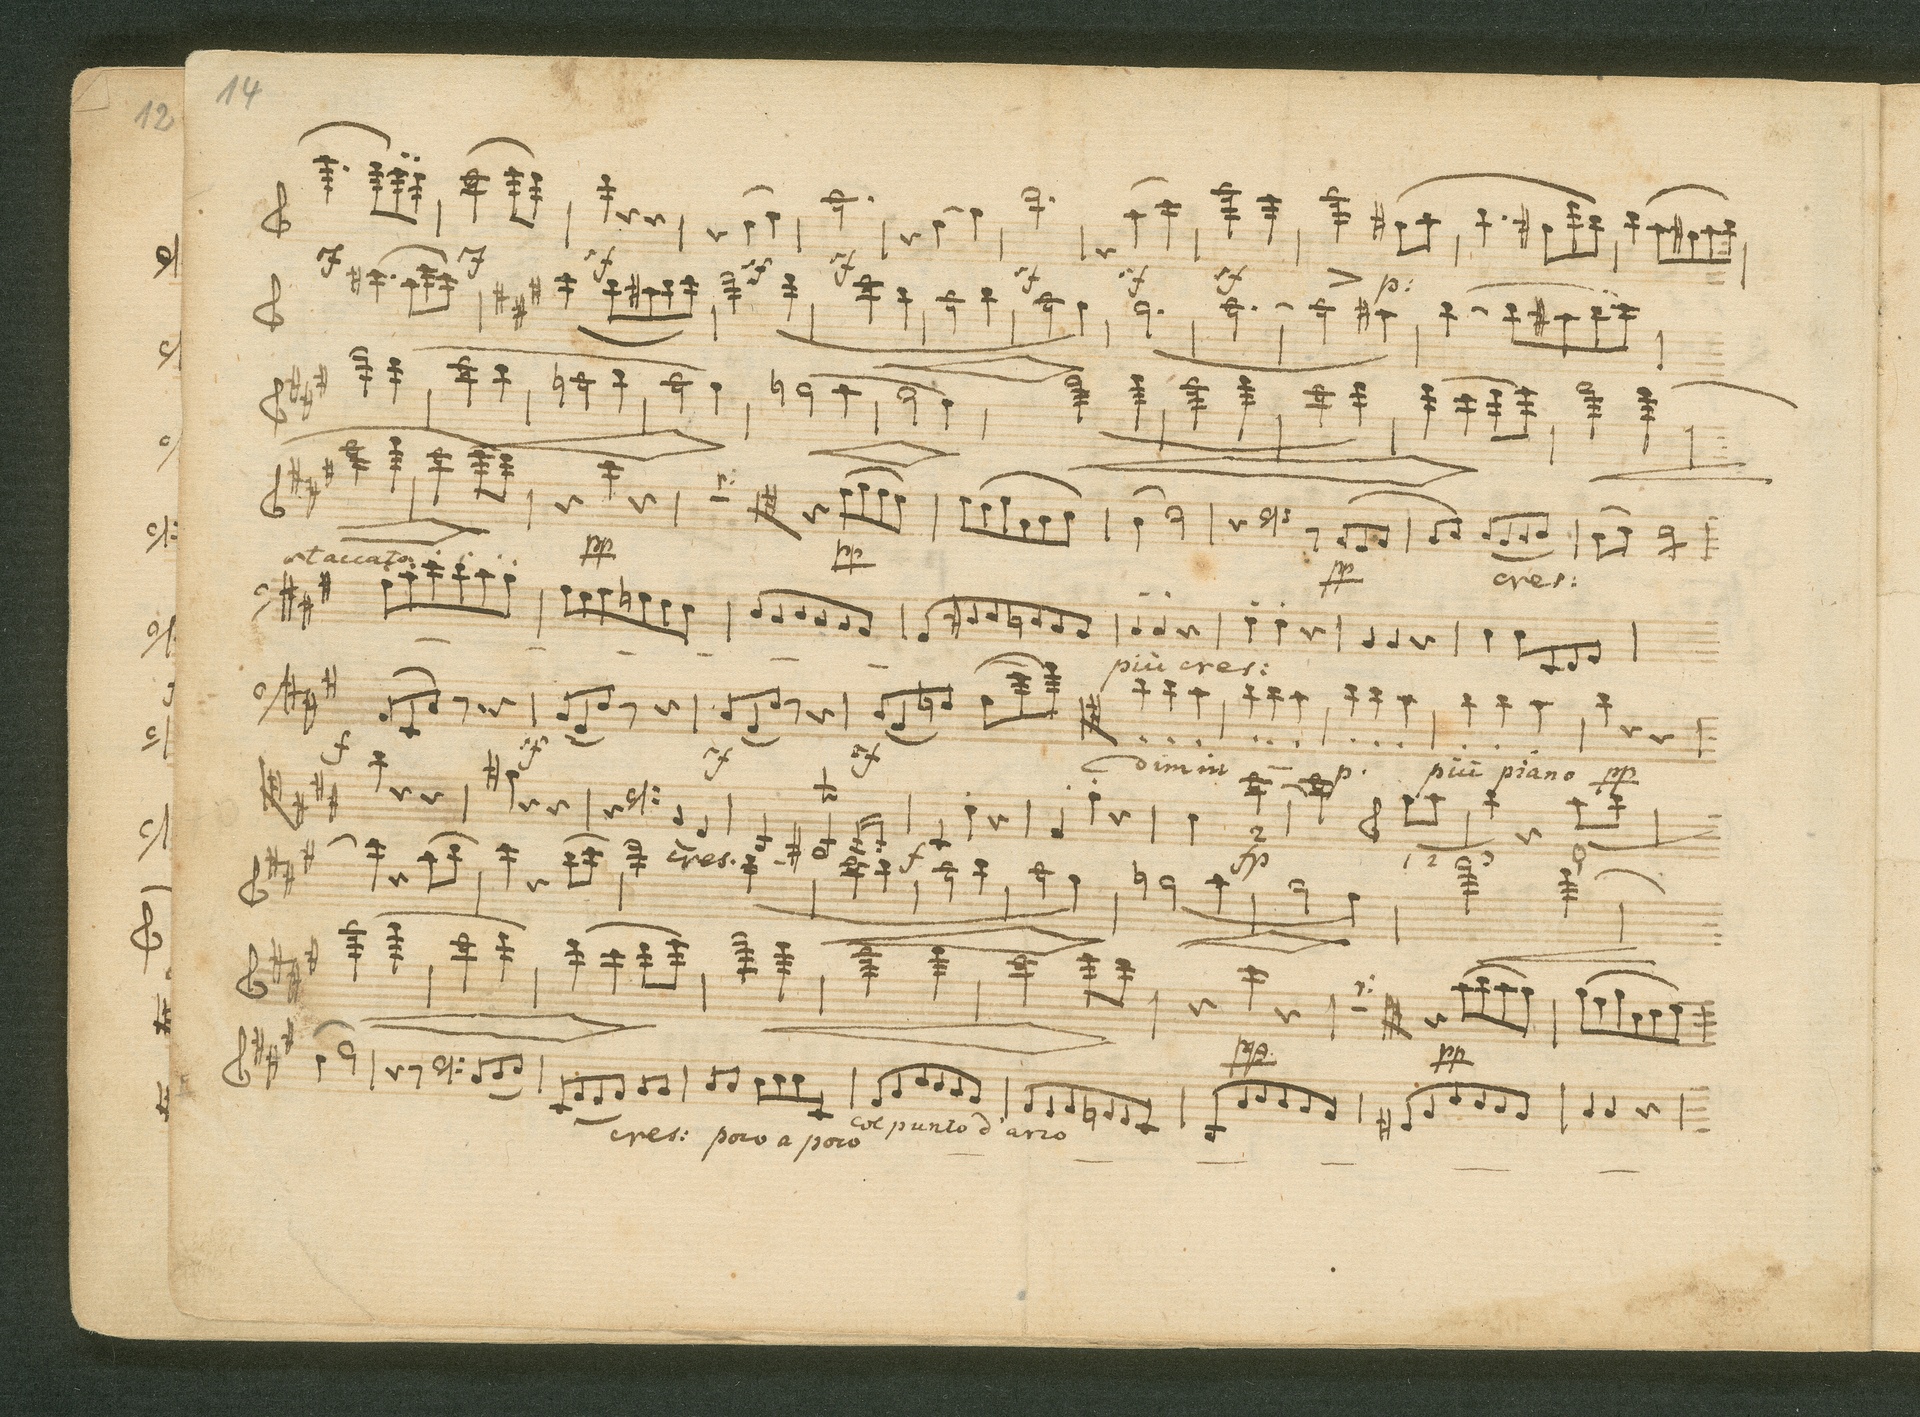 12
14
sf sf sf sf sf sf sf sf > p:
staccato. pp pp pp cres:
più cres:
f sf sf sf dimin p. più piano pp
cres. f 2 fp 1 2 3 0
pp. pp
cres: poco a poco col punto d'arco